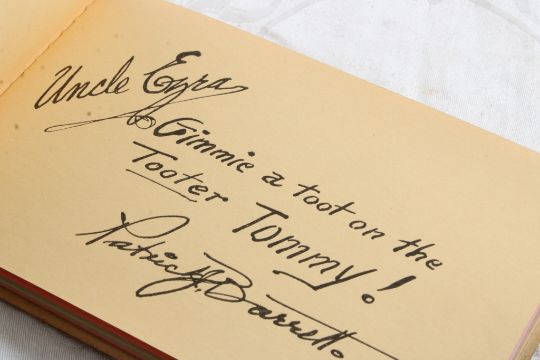 Uncle Ezra
Gimmie a toot on the
Tooter Tommy!
Patrick J. Barrett.